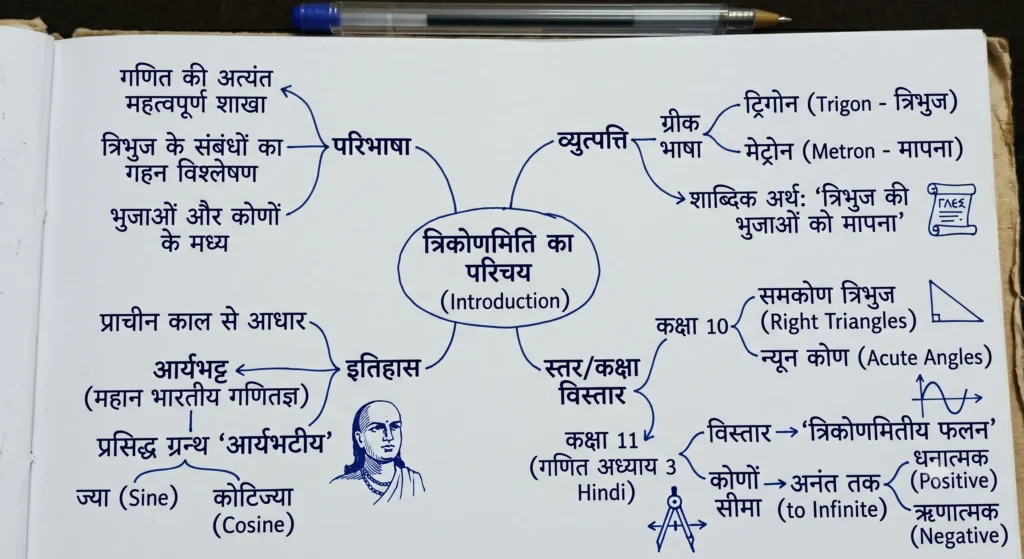 गणित की अत्यंत
महत्वपूर्ण शाखा
त्रिभुज के संबंधों का
गहन विश्लेषण
भुजाओं और कोणों
के मध्य
परिभाषा
व्युत्पत्ति
ग्रीक
भाषा
ट्रिगोन (Trigon - त्रिभुज)
मेट्रोन (Metron - मापना)
शाब्दिक अर्थ: ‘त्रिभुज की
भुजाओं को मापना’
ΓΛΕΣ
त्रिकोणमिति का
परिचय
(Introduction)
प्राचीन काल से आधार
आर्यभट्ट
(महान भारतीय गणितज्ञ)
प्रसिद्ध ग्रन्थ ‘आर्यभटीय’
ज्या (Sine)
कोटिज्या
(Cosine)
इतिहास
स्तर/कक्षा
विस्तार
कक्षा 10
समकोण त्रिभुज
(Right Triangles)
न्यून कोण (Acute Angles)
कक्षा 11
(गणित अध्याय 3
Hindi)
विस्तार → ‘त्रिकोणमितीय फलन’
कोणों
सीमा
→ अनंत तक
(to Infinite)
धनात्मक
(Positive)
ऋणात्मक
(Negative)